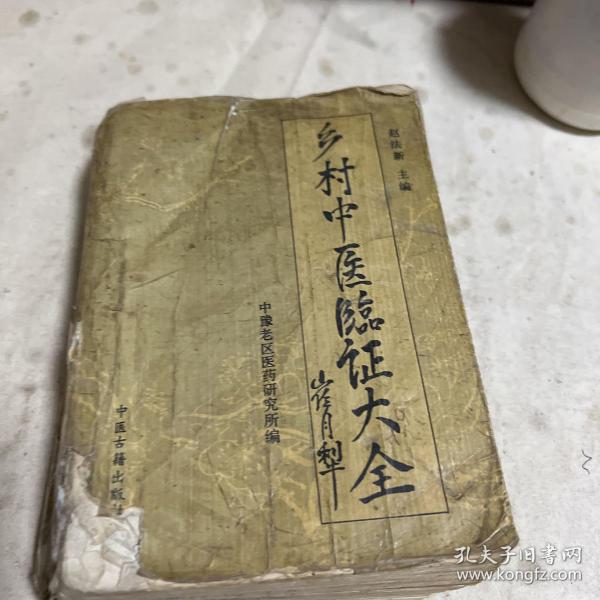 赵法新 主编
乡村中医临证大全
崔月犁
中豫老区医药研究所编
中医古籍出版社
孔夫子旧书网
www.kongfz.com